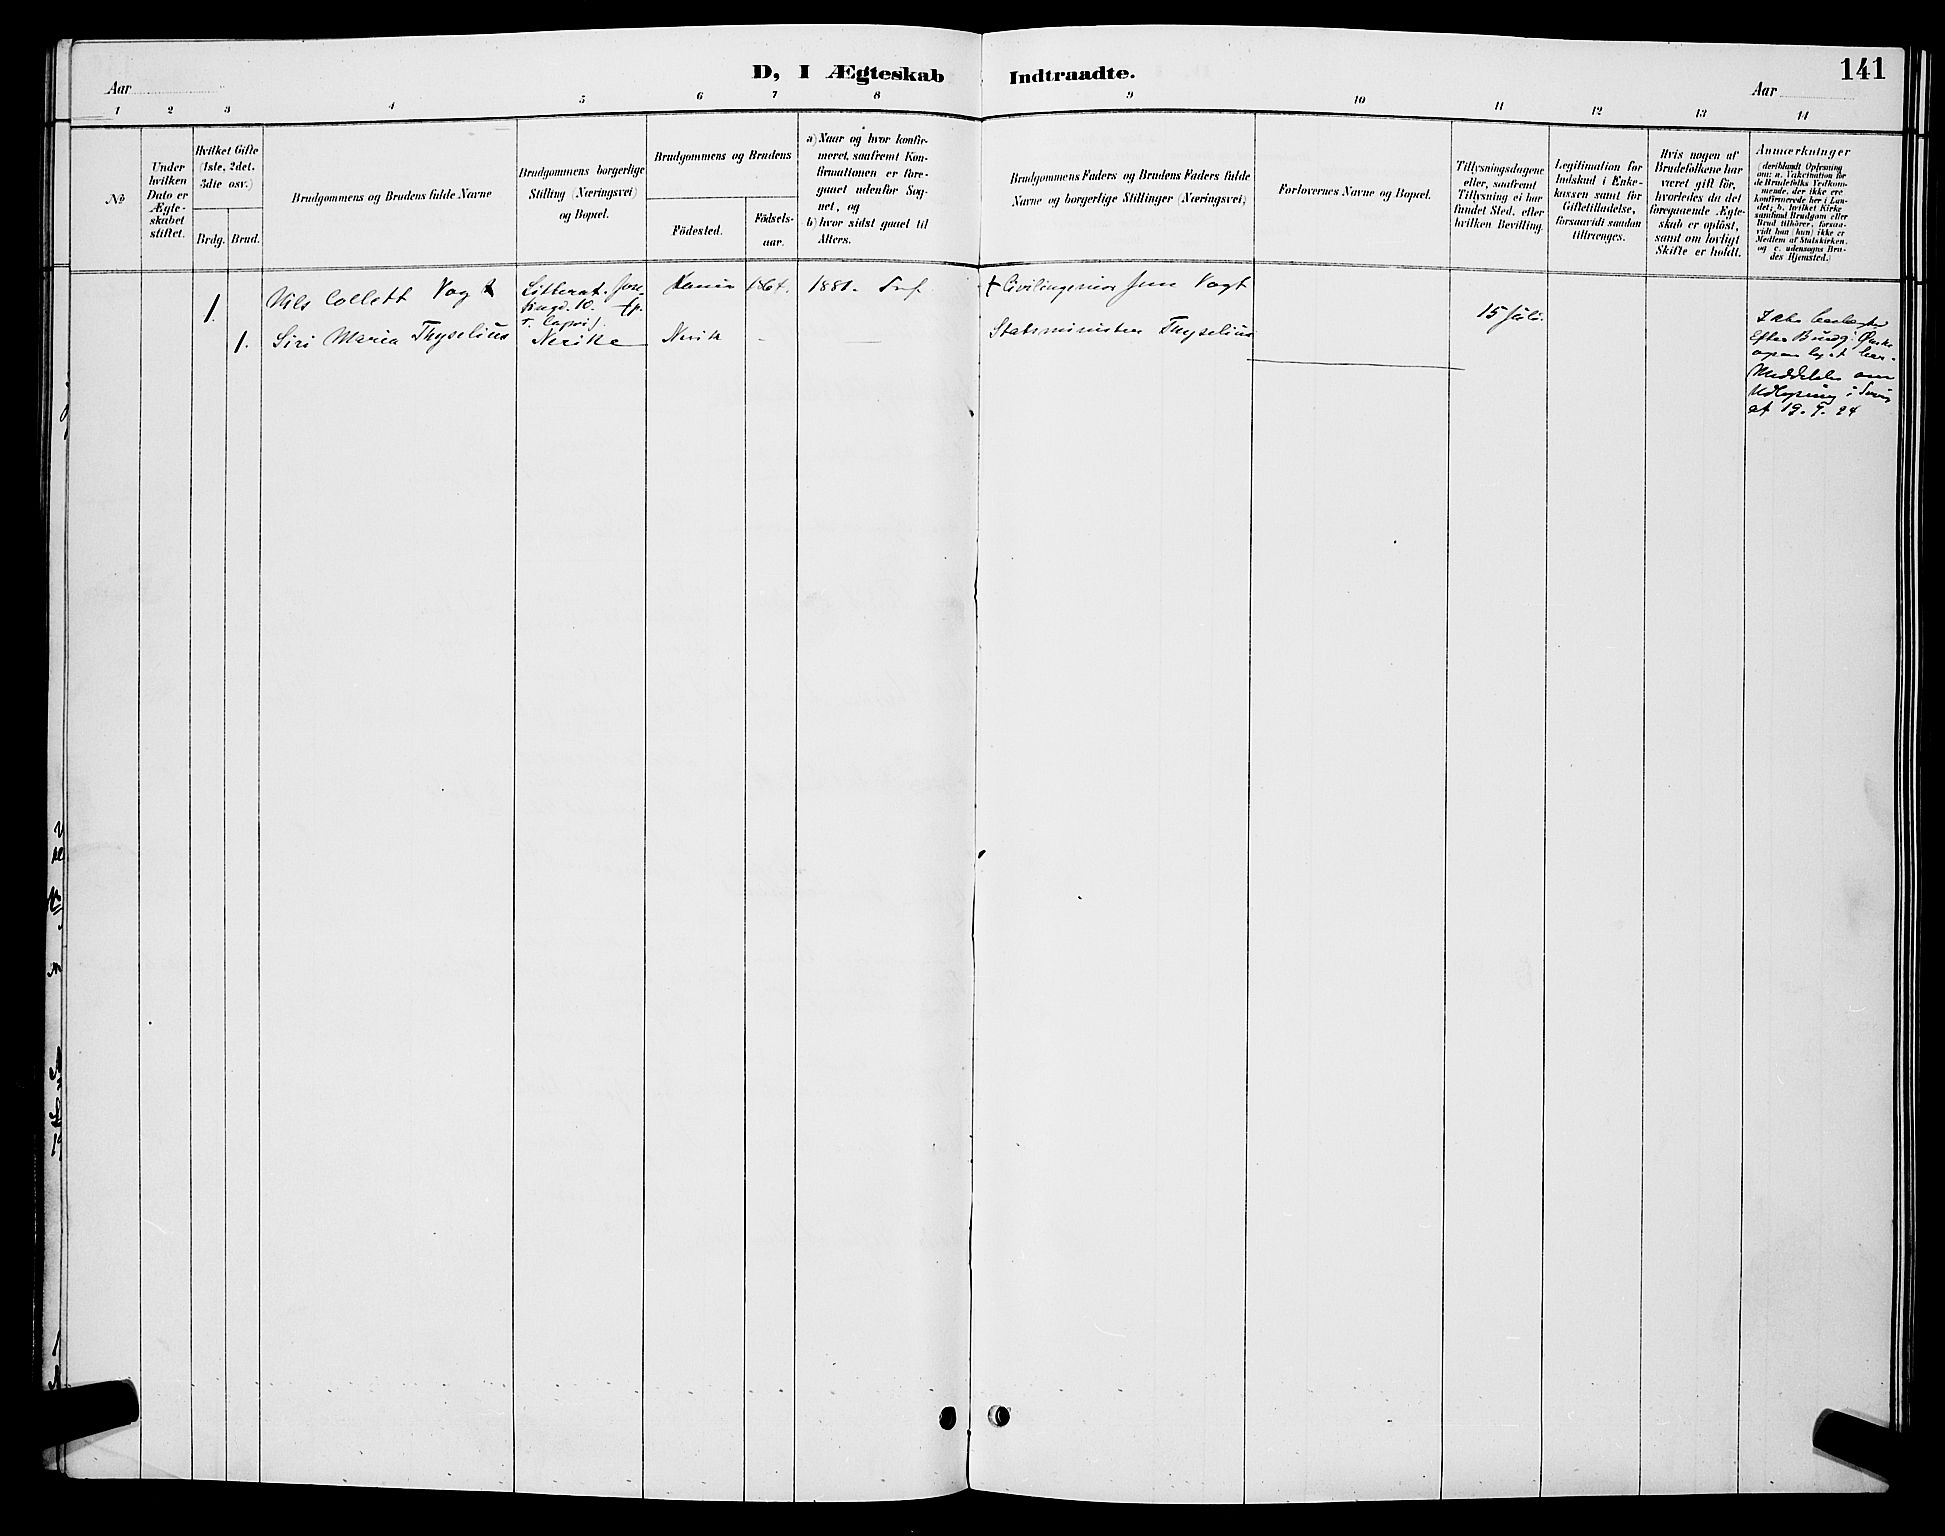 D, I Ægteskab Indtraadte.
141
Aar
Aar
1 2 3 4 5 6 7 8 9 10 11 12 13 14
No
Under
hvilken
Dato er
Ægte-
skabet
stiftet.
Hvilket Gifte
(1ste, 2det,
3dte osv.)
Brdg. Brud.
Brudgommens og Brudens fulde Navne
Brudgommens borgerlige
Stilling (Næringsvei)
og Bopæl.
Brudgommens og Brudens
Födested.
Födsels-
aar.
a) Naar og hvor konfir-
meret, saafremt Kon-
firmationen er fore-
gaaet udenfor Sog-
net, og
b) hvor sidst gaaet til
Alters.
Brudgommens Faders og Brudens Faders fulde
Navne og borgerlige Stillinger (Næringsvei)
Forlovernes Navne og Bopæl.
Tillysningsdagene
eller, saafremt
Tillysning ei har
fundet Sted, efter
hvilken Bevilling.
Legitimation for
Indskud i Enke-
kassen samt for
Giftetilladelse,
forsaavidt saadan
tiltrænges.
Hvis nogen af
Brudefolkene har
været gift för,
hvorledes da det
foregaaende Ægte-
skab er oplöst,
samt om lovligt
Skifte er holdt.
Anmærkninger
(deriblandt Oplysning
om: a. Vakcination for
de Brudefolks Vedkom-
mende, der ikke ere
konfirmerede her i Lan-
det; b. hvilket Kirke-
samfund Brudgom eller
Brud tilhörer, forsaa-
vidt han (hun) ikke er
Medlem af Statskirken,
og c. udensogns Bru-
des Hjemsted.)
1. Nils Collett Vogt Litterat. 1864. 1881. Tref.
+ Civilingeniør Jens Vogt
15 Juli.
1. Siri Maria Thyselius Nerike Nerik - —
Statsminister Thyselius
Ikke
Efter Brudg.
Meddelelse om
i
19. 9. 24